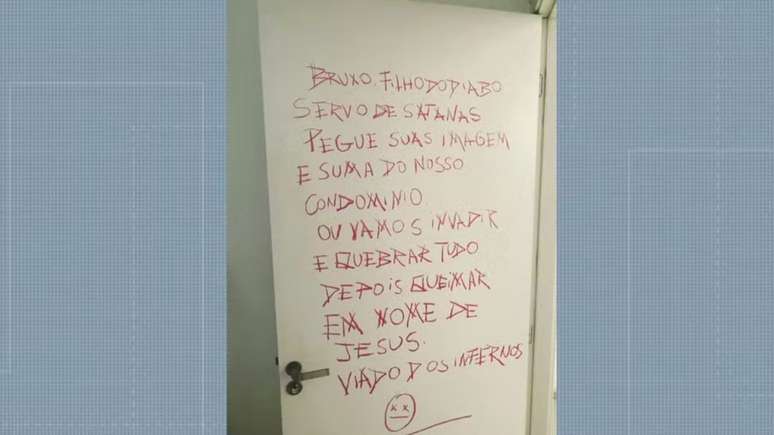 BRUXO. FILHO DO DIABO
SERVO DE SATANAS
PEGUE SUAS IMAGEM
E SUMA DO NOSSO
CONDOMINIO.
OU VAMOS INVADIR
E QUEBRAR TUDO
DEPOIS QUEIMAR
EM NOME DE
JESUS.
VIADO DOS INFERNOS